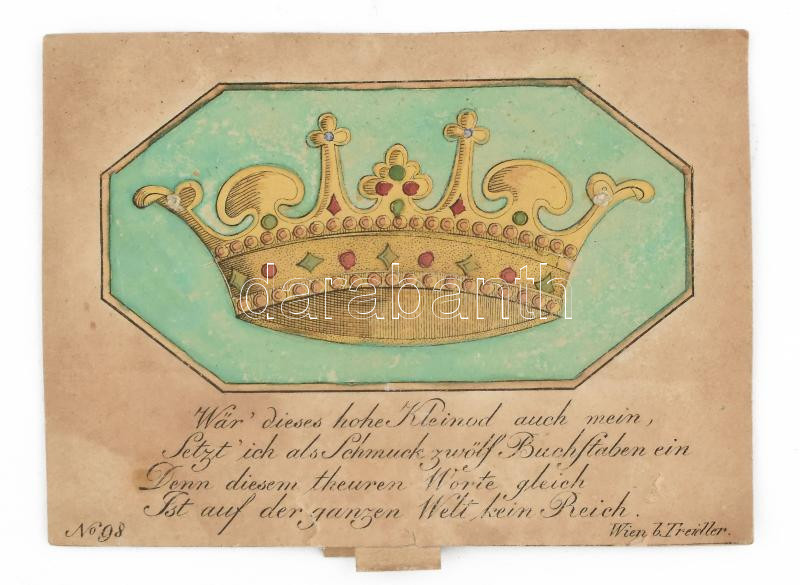 darabanth
Wär' dieses hohe Kleinod auch mein,
Setzt' ich als Schmuck zwölf Buchstaben ein
Denn diesem theuren Worte gleich
Ist auf der ganzen Welt kein Reich.
No 98
Wien b. Treidler.